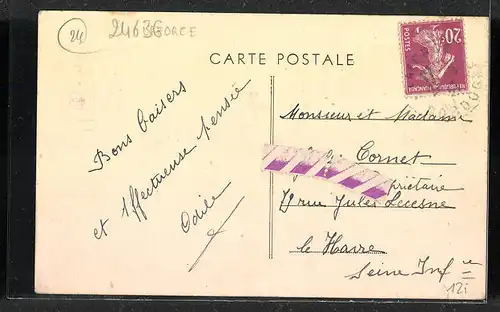 24
24636
LAFORCE
CARTE POSTALE
20c
POSTES
REPUBLIQUE FRANÇAISE
Bons baisers
et affectueuse pensée
Odile
Monsieur et Madame
Cornet
priétaire
rue Jules Lecesne
le Havre
Seine Infre
12i